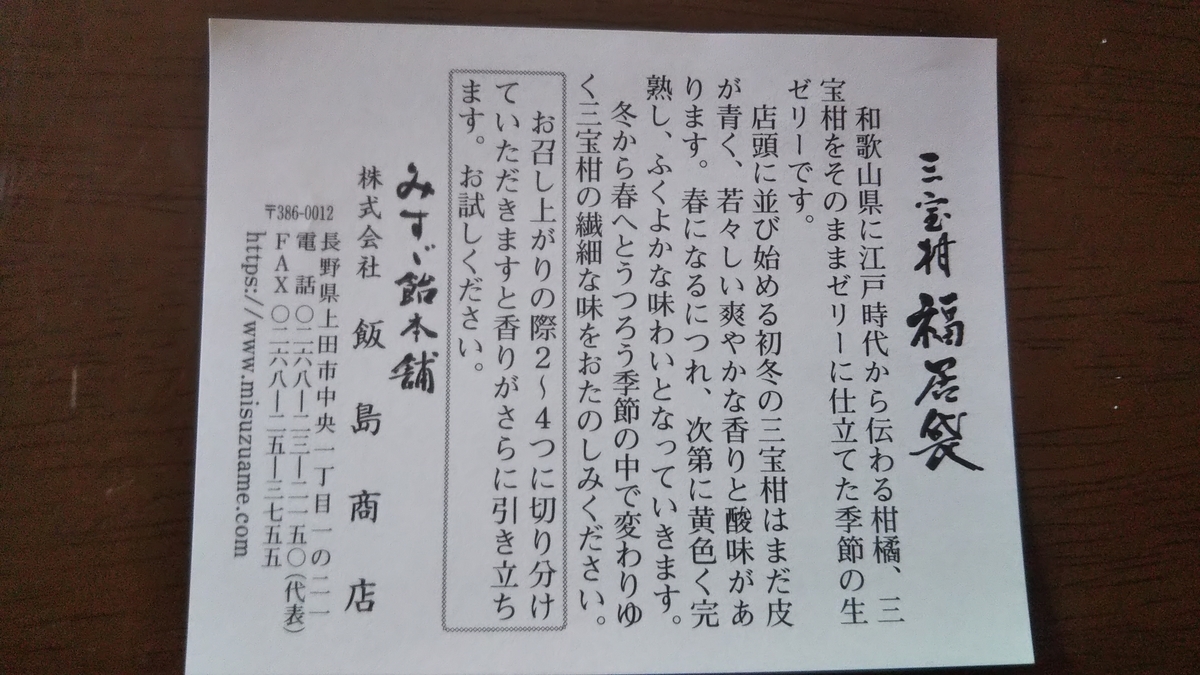 三宝柑 福居袋
和歌山県に江戸時代から伝わる柑橘、三
宝柑をそのままゼリーに仕立てた季節の生
ゼリーです。
店頭に並び始める初冬の三宝柑はまだ皮
が青く、若々しい爽やかな香りと酸味があ
ります。春になるにつれ、次第に黄色く完
熟し、ふくよかな味わいとなっていきます。
冬から春へとうつろう季節の中で変わりゆ
く三宝柑の繊細な味をおたのしみください。
お召し上がりの際2〜4つに切り分け
ていただきますと香りがさらに引き立ち
ます。お試しください。
みすゞ飴本舗
株式会社 飯島商店
〒386-0012
長野県上田市中央一丁目一の二一
電話 〇二六八―二三―二一五〇(代表)
FAX 〇二六八―二五―三七五五
https://www.misuzuame.com